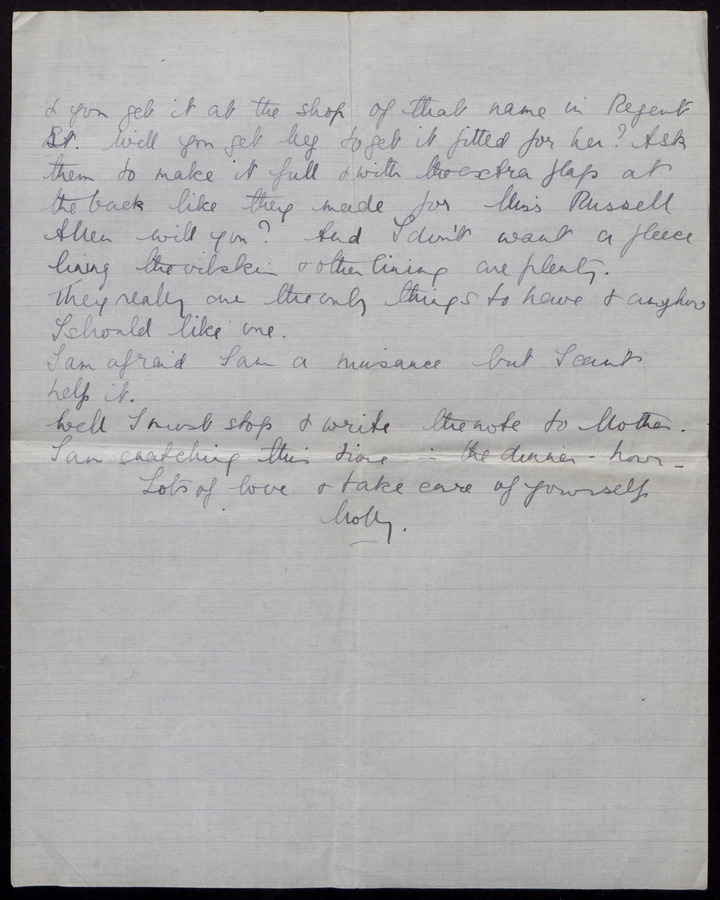 & you get it at the shop of that name in Regent
St. Will you get Meg to get it fitted for her? Ask
them to make it full & with the extra flap at
the back like they made for Miss Russell
Allen will you? And I don't want a fleece
lining the oilskin & other lining are plenty.
They really are the only things to have & anyhow
I should like one.
I am afraid I am a nuisance but I can't
help it.
Well I must stop & write the note to Mother.
I am snatching this time in the dinner-hour –
Lots of love & take care of yourself
Molly.